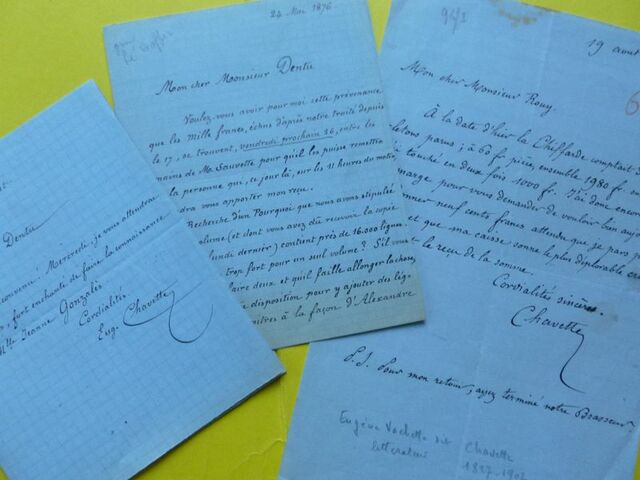 Dentu
convenu! Mercredi je vous attendrai
, fort enchanté de faire la connaissance
Mlle Jeanne Gonzalès
Cordialités
Eug. Chavette
24 Mai 1876
Mon cher Monsieur Dentu
Voulez-vous avoir pour moi cette prévenance
que les mille francs, échus d'après notre traité depuis
le 17, se trouvent, vendredi prochain 26, entre les
mains de Mr Sauvette pour qu'il les puisse remettre
la personne que, ce jour là, sur les 11 heures du matin
viendra vous apporter mon reçu.
Recherche d'un Pourquoi que nous avons stipulé
volume (et dont vous avez dû recevoir la copie
lundi dernier) contient près de 16.000 lignes.
trop fort pour un seul volume? S'il vous
faire deux et qu'il faille allonger la chose,
disposition pour y ajouter des lig
à la façon d'Alexandre
94/2
19 aout
Mon cher Monsieur Rouy
À la date d'hier la Chiffarde comptait
parus, à 60 fr pièce, ensemble 1980 fr
touché en deux fois 1000 fr. J'ai donc encore
marge pour vous demander de vouloir bien aujou
donner neuf cents francs attendu que je pars
et que ma caisse sonne le plus déplorable
le reçu de la somme.
Cordialités sincères.
Chavette
P.S. Pour mon retour, ayez terminé notre Brasseur
Eugène Vachette dit Chavette
littérateur 1827-1902